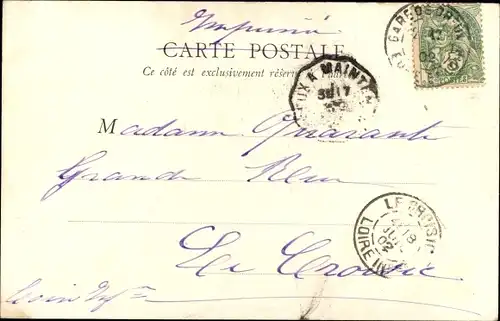 Imprimé
CARTE POSTALE
Ce côté est exclusivement réservé
GARE DE DREUX
DREUX A MAINTENON
Madame Quarante
Grande Rue
LE CROISIC
18
JUIL
02
LOIRE INF
Le Croisic
Loire Infre